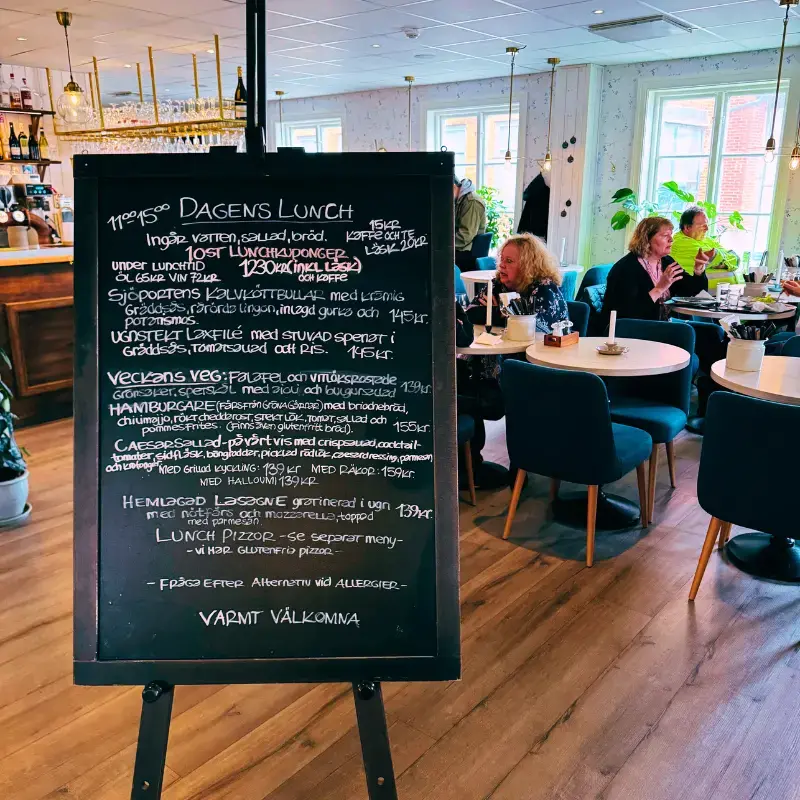 11:00-15:00 DAGENS LUNCH
INGÅR VATTEN, SALLAD, BRÖD.
15KR
KAFFE OCH TE
LÄSK 20KR
10ST LUNCHKUPONGER
1230KR(INKL LÄSK)
OCH KAFFE
UNDER LUNCHTID
ÖL 65KR VIN 72KR
SJÖPORTENS KALVKÖTTBULLAR MED KRÄMIG
GRÄDDSÅS, RÅRÖRDA LINGON, INLAGD GURKA OCH
POTATISMOS. 145KR.
UGNSTEKT LAXFILÉ MED STUVAD SPENAT I
GRÄDDSÅS, TOMATSALLAD OCH RIS. 145KR.
VECKANS VEG: FALAFEL OCH VITLÖKSROSTADE
GRÖNSAKER, SPETSKÅL MED AJOLI OCH BULGURSALLAD 139KR.
HAMBURGARE (FÄRS FRÅN GRÖNA GÅRDAR) MED BRIOCHEBRÖD,
CHILIMAJJO, RÖKT CHEDDAROST, STEKT LÖK, TOMAT, SALLAD OCH
POMMES FRITES. (FINNS ÄVEN GLUTENFRITT BRÖD). 155KR.
CAESARSALLAD - PÅ VÅRT VIS MED CRISPSALLAD, COCKTAIL-
TOMATER, SIDFLÄSK, BÖNGRODDAR, PICKLAD RÖDLÖK, CAESARDRESSING, PARMESAN
OCH KRUTONGER. MED GRILLAD KYCKLING: 139KR MED RÄKOR: 159KR.
MED HALLOUMI 139KR
HEMLAGAD LASAGNE GRATINERAD I UGN
MED NÖTFÄRS OCH MOZZARELLA, TOPPAD 139KR.
MED PARMESAN.
LUNCH PIZZOR - SE SEPARAT MENY-
- VI HAR GLUTENFRIA PIZZOR -
- FRÅGA EFTER ALTERNATIV VID ALLERGIER -
VARMT VÄLKOMNA